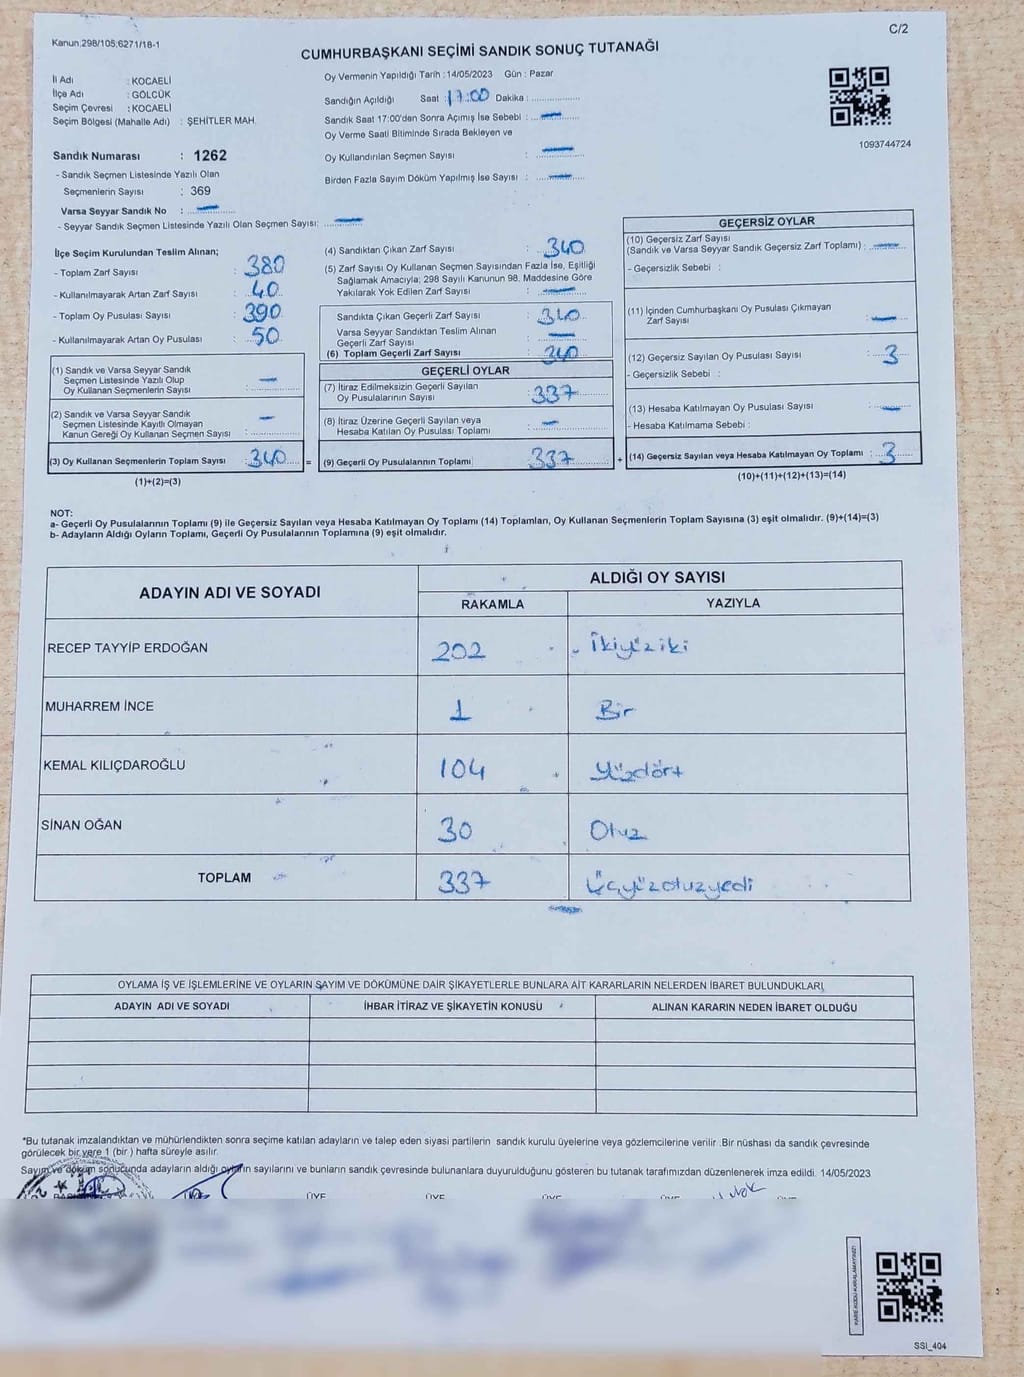 Kanun:298/105;6271/18-1
C/2
CUMHURBAŞKANI SEÇİMİ SANDIK SONUÇ TUTANAĞI
İl Adı : KOCAELİ
İlçe Adı : GÖLCÜK
Seçim Çevresi : KOCAELİ
Seçim Bölgesi (Mahalle Adı) : ŞEHİTLER MAH.
Sandık Numarası : 1262
- Sandık Seçmen Listesinde Yazılı Olan
Seçmenlerin Sayısı : 369
Varsa Seyyar Sandık No :
- Seyyar Sandık Seçmen Listesinde Yazılı Olan Seçmen Sayısı:
Oy Vermenin Yapıldığı Tarih : 14/05/2023 Gün : Pazar
Sandığın Açıldığı Saat : 17:00 Dakika :
Sandık Saat 17:00'den Sonra Açımış İse Sebebi :
Oy Verme Saati Bitiminde Sırada Bekleyen ve
Oy Kullandırılan Seçmen Sayısı :
Birden Fazla Sayım Döküm Yapılmış İse Sayısı :
1093744724
İlçe Seçim Kurulundan Teslim Alınan;
- Toplam Zarf Sayısı : 380
- Kullanılmayarak Artan Zarf Sayısı : 40
- Toplam Oy Pusulası Sayısı : 390
- Kullanılmayarak Artan Oy Pusulası : 50
(1) Sandık ve Varsa Seyyar Sandık
Seçmen Listesinde Yazılı Olup
Oy Kullanan Seçmenlerin Sayısı :
(2) Sandık ve Varsa Seyyar Sandık
Seçmen Listesinde Kayıtlı Olmayan
Kanun Gereği Oy Kullanan Seçmen Sayısı :
(3) Oy Kullanan Seçmenlerin Toplam Sayısı : 340 =
(1)+(2)=(3)
(4) Sandıktan Çıkan Zarf Sayısı : 340
(5) Zarf Sayısı Oy Kullanan Seçmen Sayısından Fazla İse, Eşitliği
Sağlamak Amacıyla; 298 Sayılı Kanunun 98. Maddesine Göre
Yakılarak Yok Edilen Zarf Sayısı :
Sandıkta Çıkan Geçerli Zarf Sayısı : 340
Varsa Seyyar Sandıktan Teslim Alınan
Geçerli Zarf Sayısı :
(6) Toplam Geçerli Zarf Sayısı : 340
GEÇERLİ OYLAR
(7) İtiraz Edilmeksizin Geçerli Sayılan
Oy Pusulalarının Sayısı : 337
(8) İtiraz Üzerine Geçerli Sayılan veya
Hesaba Katılan Oy Pusulası Toplamı :
(9) Geçerli Oy Pusulalarının Toplamı : 337 +
GEÇERSİZ OYLAR
(10) Geçersiz Zarf Sayısı
(Sandık ve Varsa Seyyar Sandık Geçersiz Zarf Toplamı) :
- Geçersizlik Sebebi :
(11) İçinden Cumhurbaşkanı Oy Pusulası Çıkmayan
Zarf Sayısı :
(12) Geçersiz Sayılan Oy Pusulası Sayısı : 3
- Geçersizlik Sebebi :
(13) Hesaba Katılmayan Oy Pusulası Sayısı :
- Hesaba Katılmama Sebebi :
(14) Geçersiz Sayılan veya Hesaba Katılmayan Oy Toplamı : 3
(10)+(11)+(12)+(13)=(14)
NOT:
a- Geçerli Oy Pusulalarının Toplamı (9) ile Geçersiz Sayılan veya Hesaba Katılmayan Oy Toplamı (14) Toplamları, Oy Kullanan Seçmenlerin Toplam Sayısına (3) eşit olmalıdır. (9)+(14)=(3)
b- Adayların Aldığı Oyların Toplamı, Geçerli Oy Pusulalarının Toplamına (9) eşit olmalıdır.
ADAYIN ADI VE SOYADI
ALDIĞI OY SAYISI
RAKAMLA YAZIYLA
RECEP TAYYİP ERDOĞAN 202 İkiyüziki
MUHARREM İNCE 1 Bir
KEMAL KILIÇDAROĞLU 104 Yüzdört
SİNAN OĞAN 30 Otuz
TOPLAM 337 Üçyüzotuzyedi
OYLAMA İŞ VE İŞLEMLERİNE VE OYLARIN SAYIM VE DÖKÜMÜNE DAİR ŞİKAYETLERLE BUNLARA AİT KARARLARIN NELERDEN İBARET BULUNDUKLARI
ADAYIN ADI VE SOYADI İHBAR İTİRAZ VE ŞİKAYETİN KONUSU ALINAN KARARIN NEDEN İBARET OLDUĞU
*Bu tutanak imzalandıktan ve mühürlendikten sonra seçime katılan adayların ve talep eden siyasi partilerin sandık kurulu üyelerine veya gözlemcilerine verilir .Bir nüshası da sandık çevresinde
görülecek bir yere 1 (bir ) hafta süreyle asılır.
Sayım ve döküm sonucunda adayların aldığı oyların sayılarını ve bunların sandık çevresinde bulunanlara duyurulduğunu gösteren bu tutanak tarafımızdan düzenlenerek imza edildi. 14/05/2023
ÜYE ÜYE ÜYE ÜYE ÜYE
SSI_404